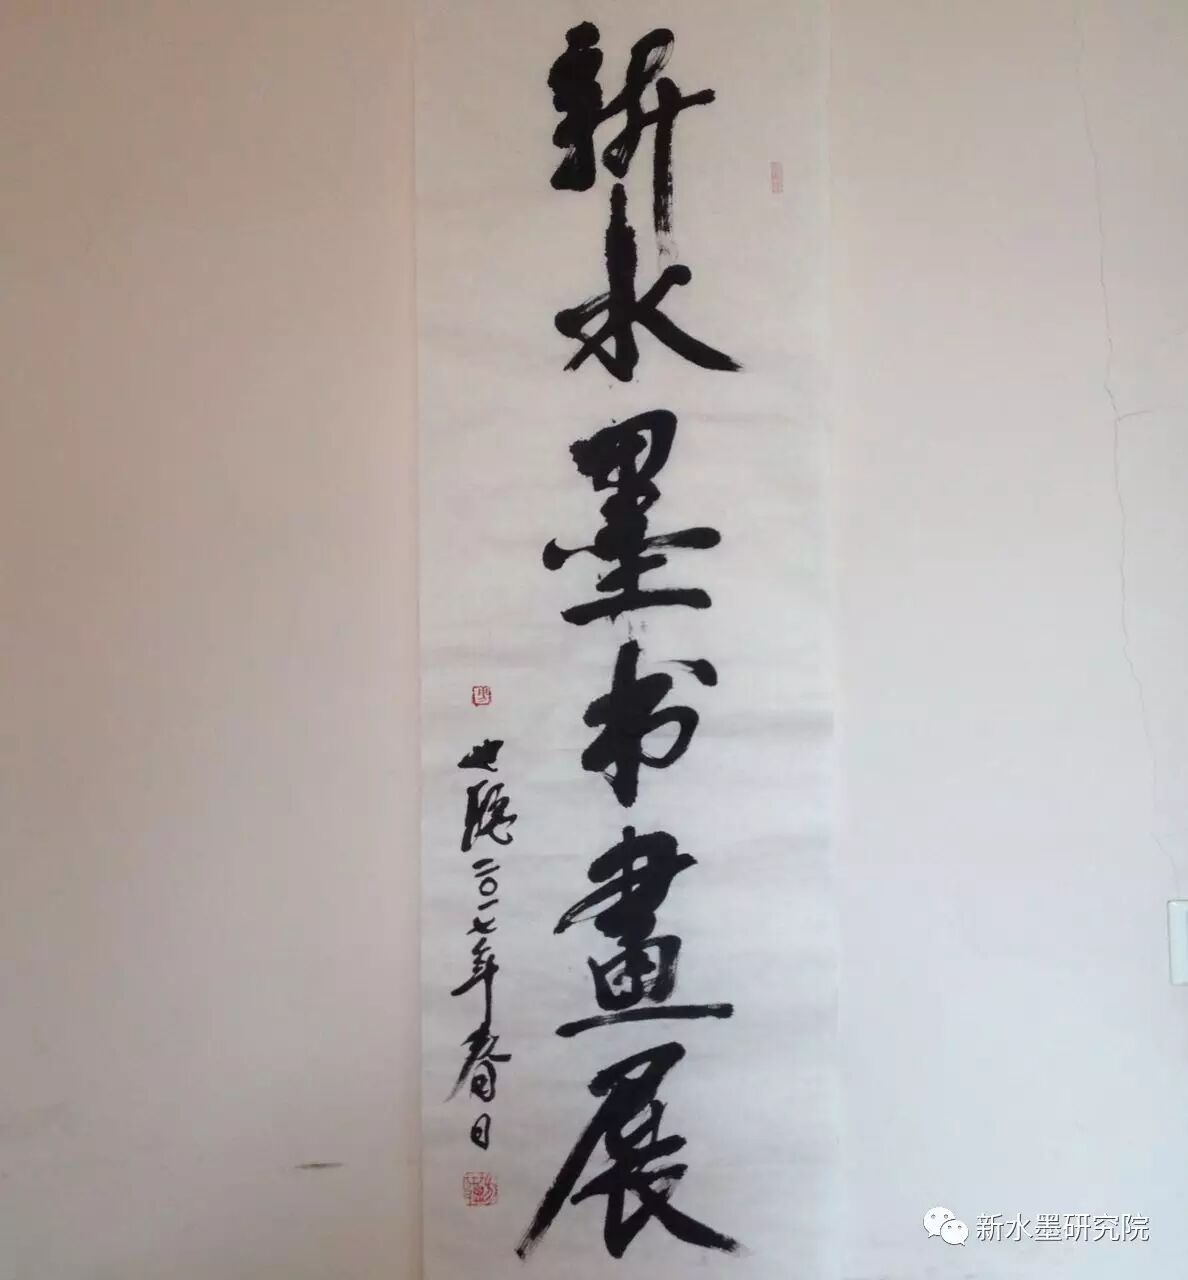 新水墨书畫展
世聰二〇一七年春日
新水墨研究院